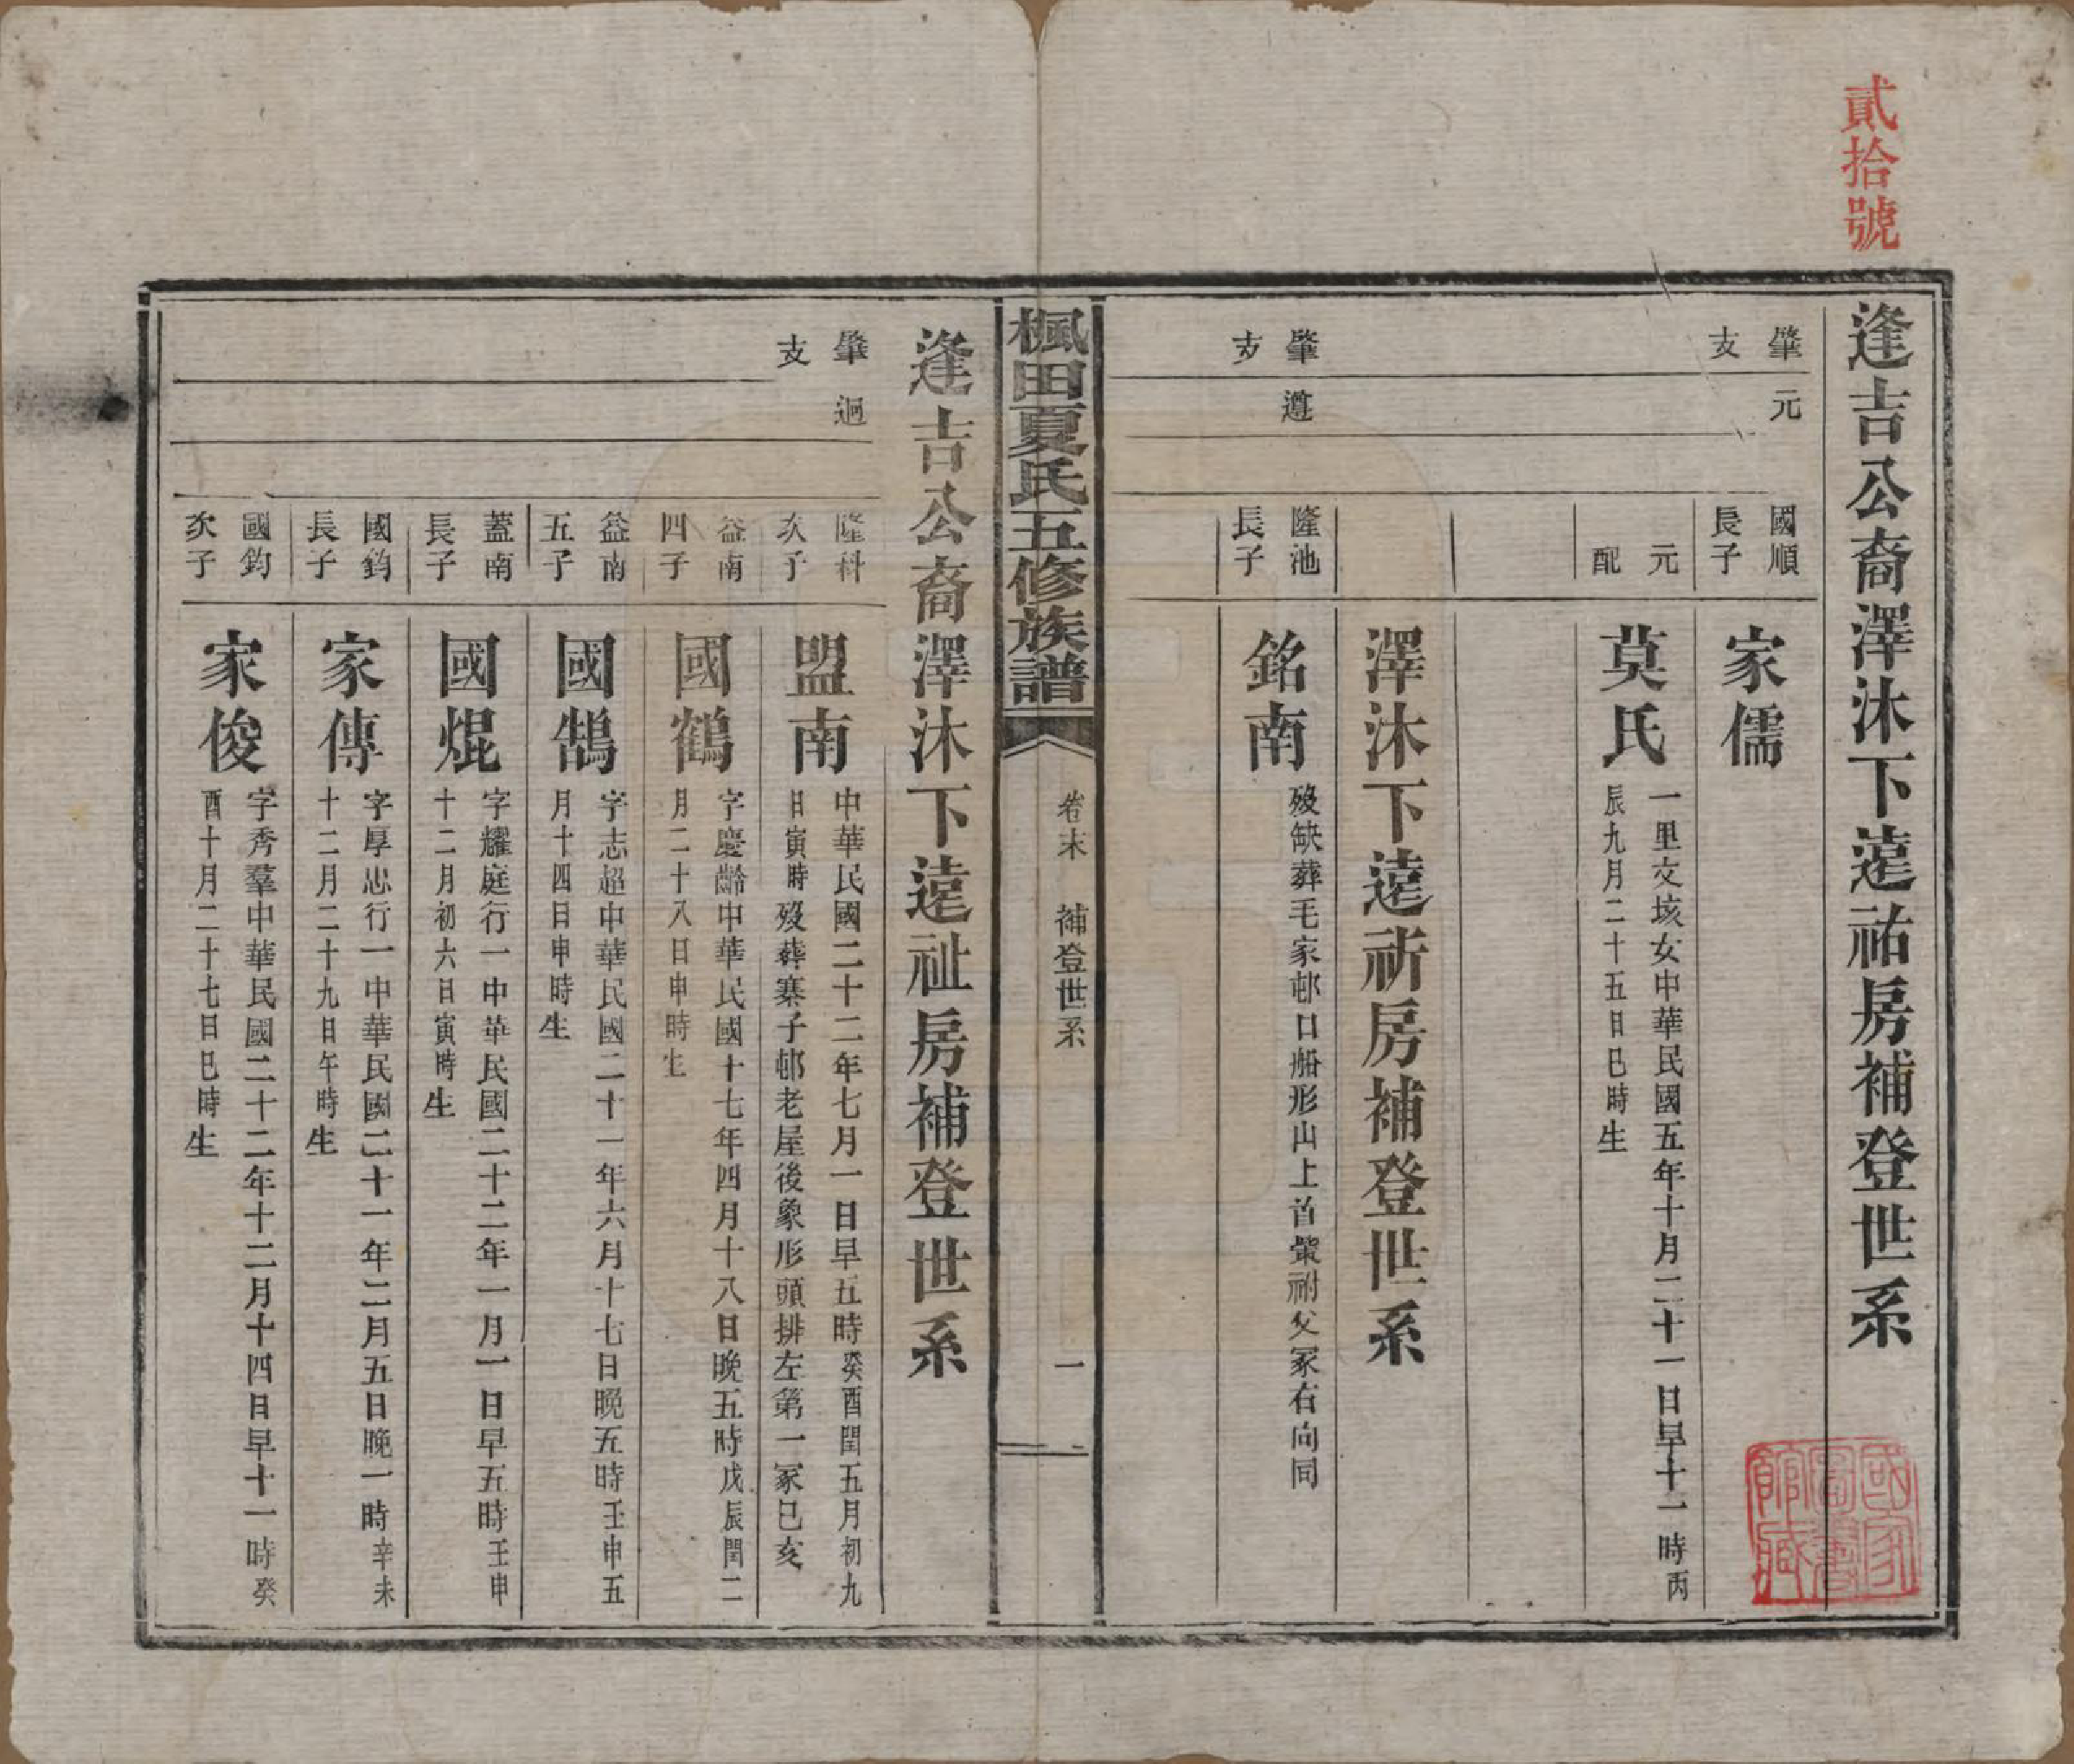 貳拾號
逢吉公裔澤沐下逺祐房補登世系
肇元
支
國順
長子
家儒
元
配
莫氏
一里交垓女中華民國五年十月二十一日早十一時丙
辰九月二十五日巳時生
澤沐下逺祈房補登世系
肇遵
支
隆池
長子
銘南
歿缺葬毛家邨口船形山上首塋祔父冢右向同
楓田夏氏五修族譜
卷末 補登世系
一
逢吉公裔澤沐下逺祉房補登世系
肇迥
支
隆科
次子
盟南
中華民國二十二年七月一日早五時癸酉閏五月初九
日寅時歿葬寨子邨老屋後象形頭排左第一冢巳亥
益南
四子
國鶴
字慶齡中華民國十七年四月十八日晚五時戊辰閏二
月二十八日申時生
益南
五子
國鵠
字志超中華民國二十一年六月十七日晚五時壬申五
月十四日申時生
蓋南
長子
國焜
字耀庭行一中華民國二十二年一月一日早五時壬申
十二月初六日寅時生
國鈞
長子
家傳
字厚思行一中華民國二十一年二月五日晚一時辛未
十二月二十九日午時生
國鈞
次子
家俊
字秀羣中華民國二十二年十二月十四日早十一時癸
酉十月二十七日巳時生
國家
圖書
館藏